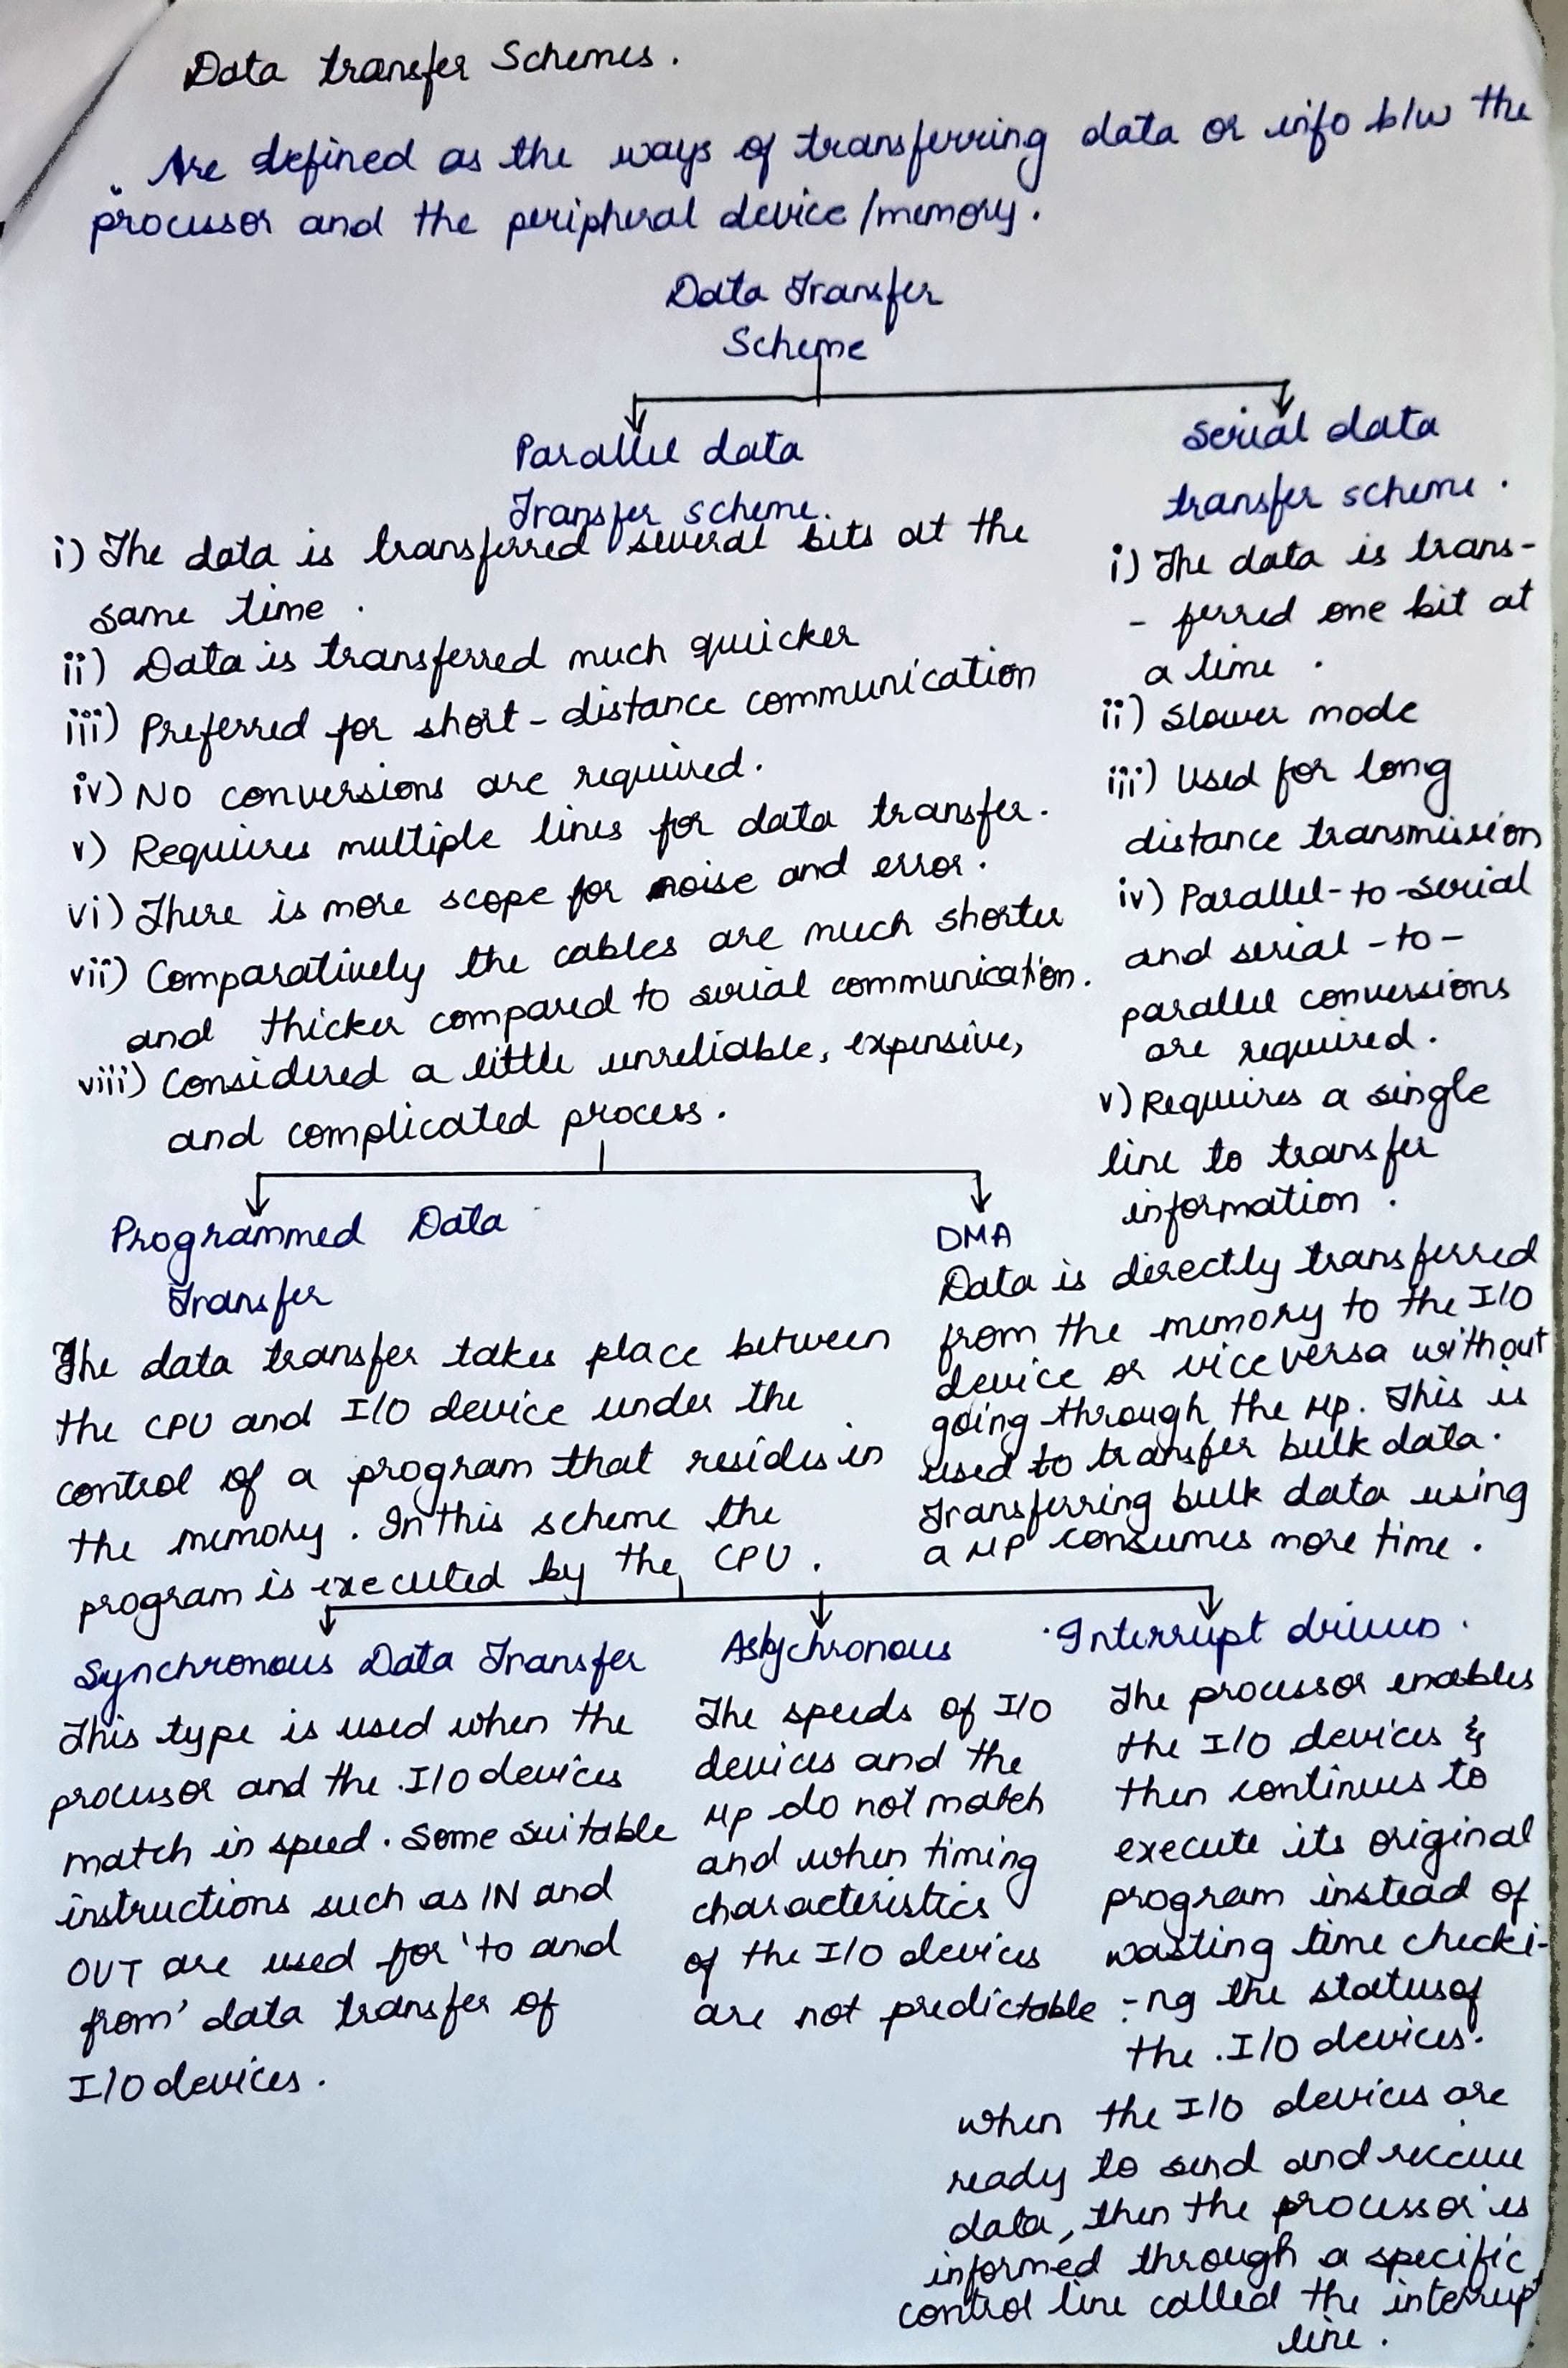 Data transfer Schemes.
Are defined as the ways of transferring data or info b/w the
processor and the peripheral device/memory.
Data Transfer
Scheme
Parallel data
Transfer scheme.
i) The data is transferred several bits at the
same time.
ii) Data is transferred much quicker
iii) Preferred for short-distance communication
iv) No conversions are required.
v) Requires multiple lines for data transfer.
vi) There is more scope for noise and error.
vii) Comparatively the cables are much shorter
and thicker compared to serial communication.
viii) Considered a little unreliable, expensive,
and complicated process.
Serial data
transfer scheme.
i) The data is trans-
- ferred one bit at
a time.
ii) Slower mode
iii) Used for long
distance transmission
iv) Parallel-to-serial
and serial-to-
parallel conversions
are required.
v) Requires a single
line to transfer
information.
Programmed Data
Transfer
The data transfer takes place between
the CPU and I/O device under the
control of a program that resides in
the memory. In this scheme the
program is executed by the CPU.
DMA
Data is directly transferred
from the memory to the I/O
device or vice versa without
going through the μp. This is
used to transfer bulk data.
Transferring bulk data using
a μP consumes more time.
Synchronous Data Transfer
This type is used when the
processor and the I/O devices
match in speed. Some suitable
instructions such as IN and
OUT are used for 'to and
from' data transfer of
I/O devices.
The speeds of I/O
devices and the
μp do not match
and when timing
characteristics
of the I/O devices
are not predictable
Interrupt driven.
The processor enables
the I/O devices &
then continues to
execute its original
program instead of
wasting time checki-
-ng the status of
the I/O devices.
when the I/O devices are
ready to send and receive
data, then the processor is
informed through a specific
control line called the interrupt
line.